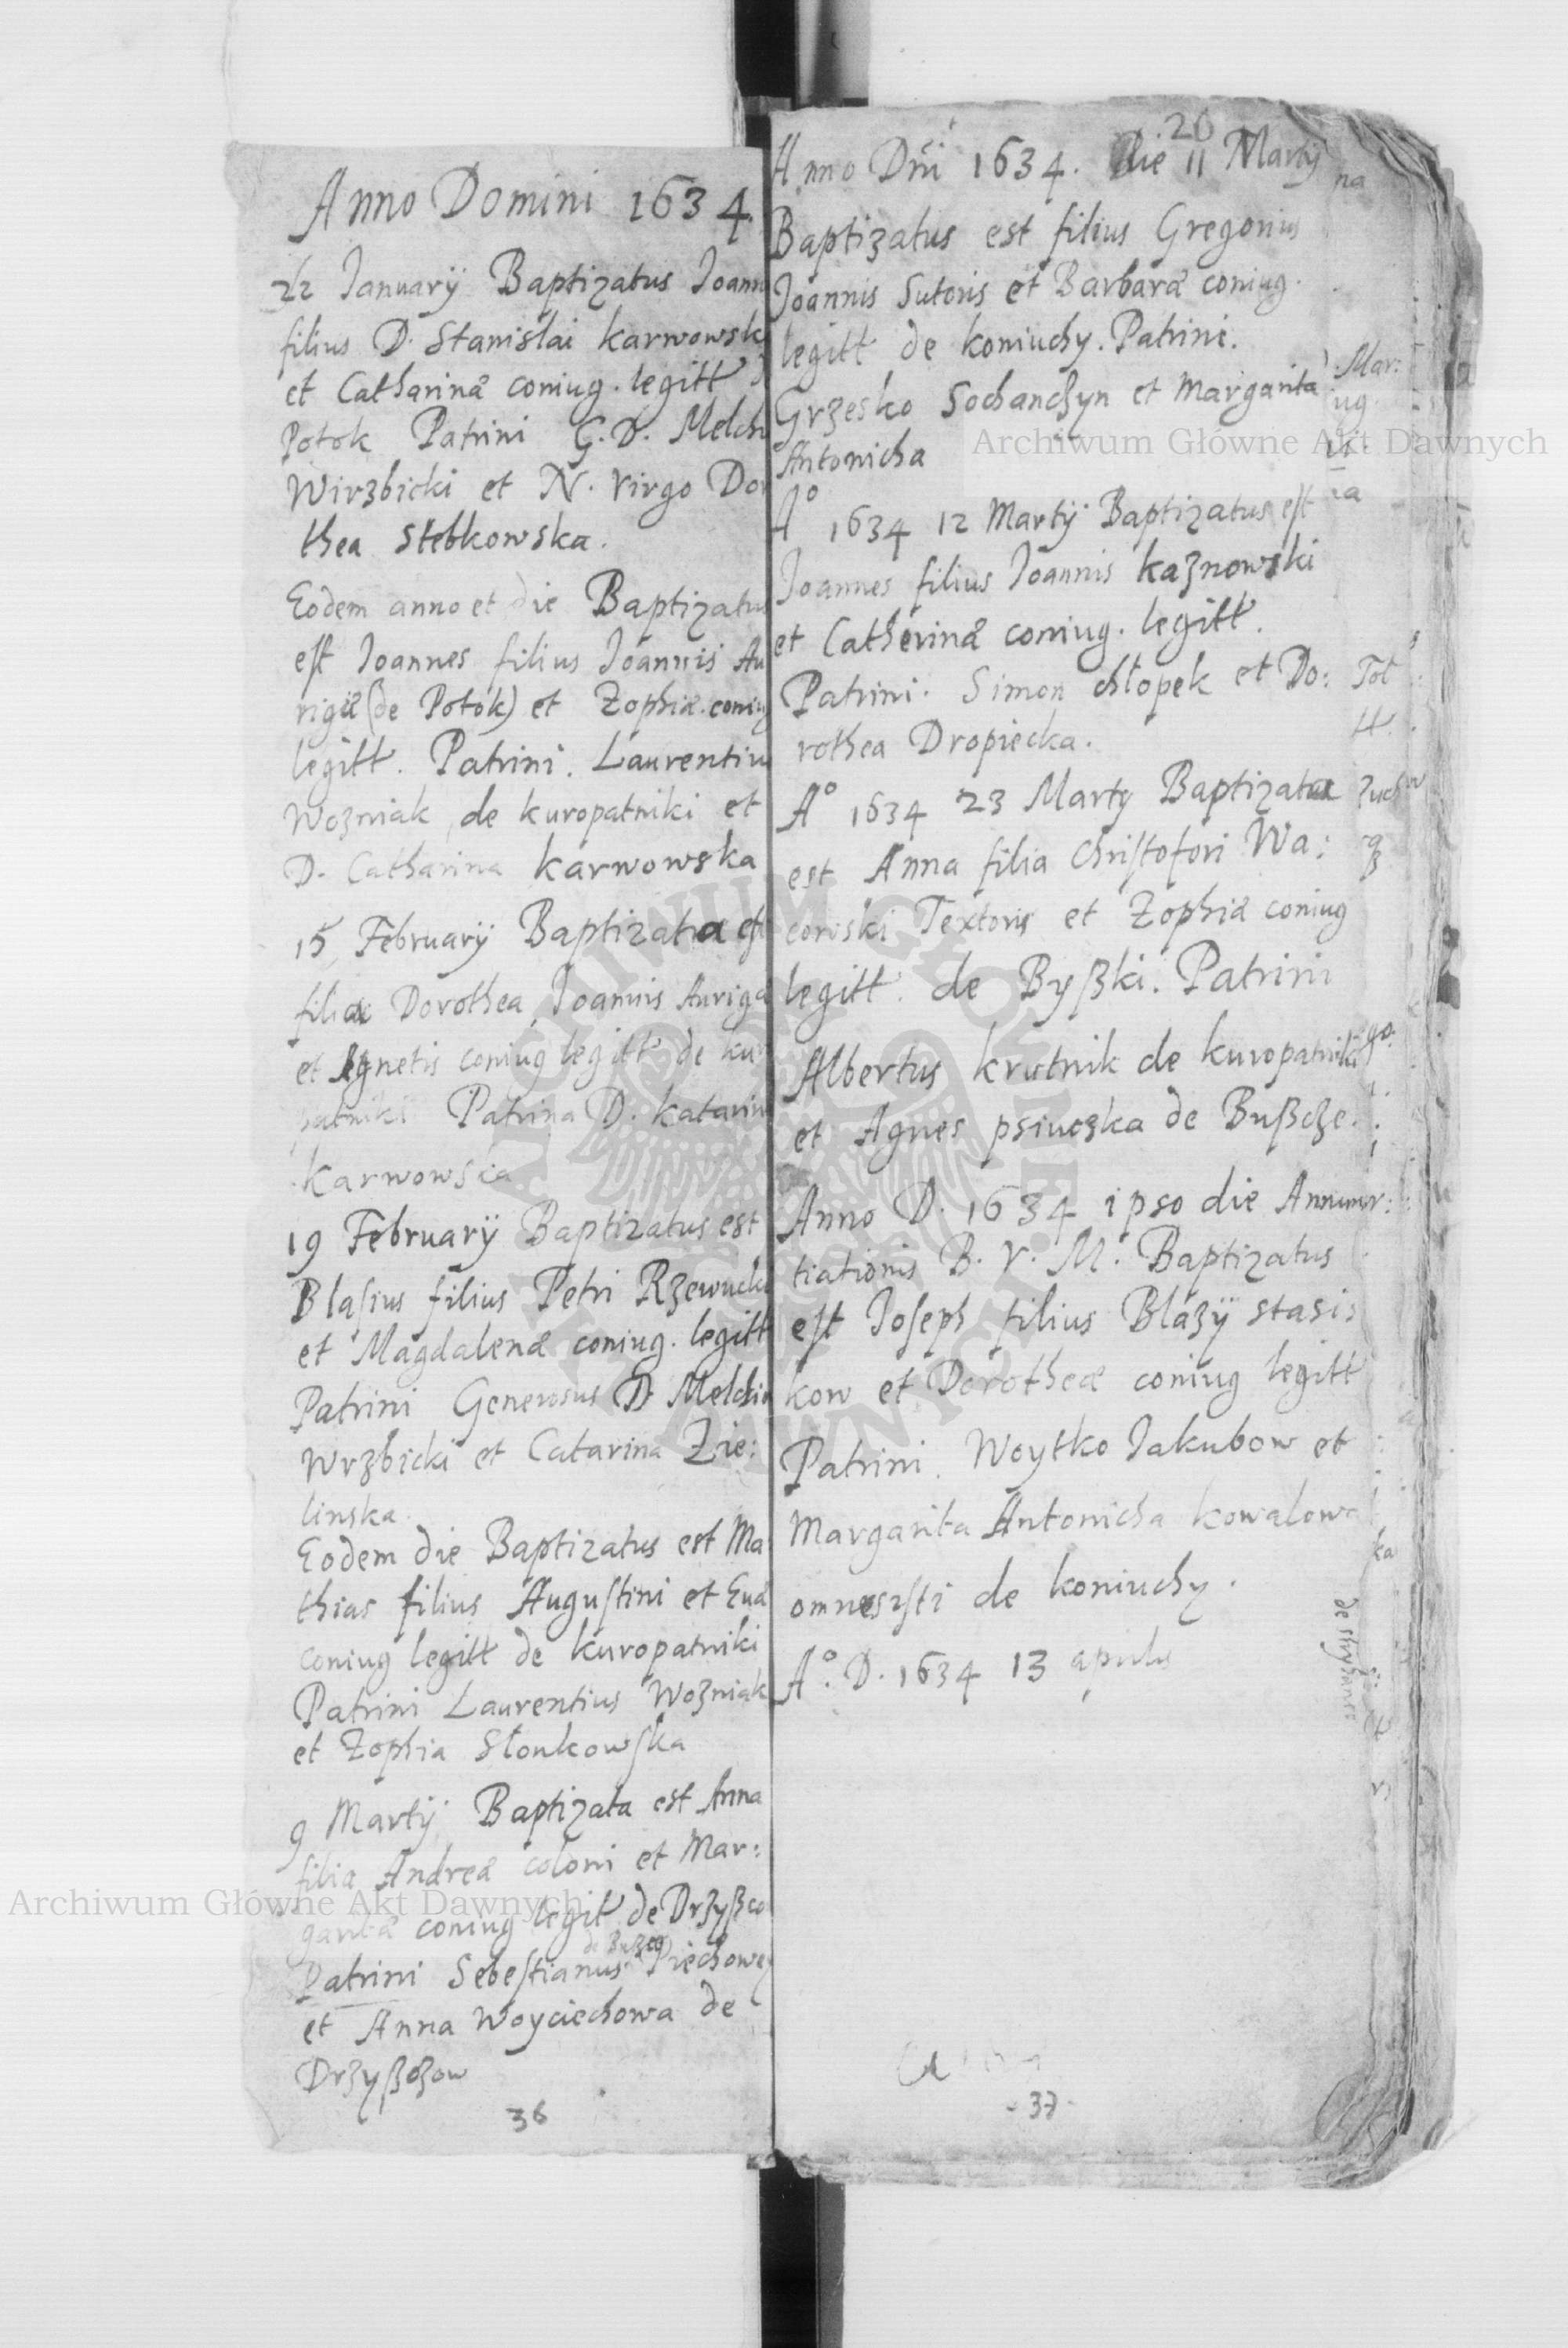 Anno Domini 1634.
22 Januarÿ Baptizatus Joann
filius D. Stanislai Karwowsk
et Catharinæ coniug. legitt
Potok Patrini G. D. Melch
Wirzbicki et N. Virgo Do
thea Stebkowska.
Eodem anno et die Baptizatus
est Joannes filius Joannis Au
rigæ (de Potok) et Zophiæ coniug
legitt. Patrini. Laurentiu
Wozniak de kuropatniki et
D. Catharina Karwowska
15 Februarÿ Baptizata est
filia Dorothea Joannis Auriga
et Agnetis coniug legitt de kur
patniki Patrina D. Katarin
Karwowska
19 Februarÿ Baptizatus est
Blasius filius Petri Rzewucki
et Magdalenæ coniug. legitt
Patrini Generosus D Melchio
Wrzbicki et Catarina Zie:
linska.
Eodem die Baptizatus est Ma
thias filius Augustini et Euæ
coniug legitt de kuropatniki
Patrini Laurentius Wozniak
et Zophia Słonkowska
9 Martÿ Baptizata est Anna
filia Andreæ coloni et Mar:
garitæ coniug legit de Drzyßco
Patrini Sebestianus Piechowe
et Anna Woyciechowa de
Drzyßczow
36
20
Anno Dñi 1634. Die 11 Martÿ
Baptizatus est filius Gregorius
Joannis Sutoris et Barbaræ coniug.
legitt de koniuchy. Patrini.
Grzesko Sochanczyn et Margarita
Antonicha
A° 1634 12 Martÿ Baptizatus est
Joannes filius Joannis kaznowski
et Catherinæ coniug. legitt.
Patrini. Simon chłopek et Do:
rothea Dropiecka.
A° 1634 23 Marty Baptizata
est Anna filia Christofori Wa:
corski Textoris et Zophiæ coniug
legitt. de Byßki. Patrini
Albertus krutnik de kuropatniki
et Agnes psiuczka de Bußcze.
Anno D. 1634 ipso die Annun:
tiationis B. V. M. Baptizatus
est Joseph filius Blazÿ stasis
kow et Dorotheæ coniug legitt
Patrini. Woytko Jakubow et
Margarita Antonicha kowalowa
omnes isti de koniuchy.
A°. D. 1634 13 aprilis
37
na
Mar:
ug.
ia
Tot
tt.
go.
ka
Archiwum Główne Akt Dawnych
Archiwum Główne Akt Dawnych
ARCHIWUM GŁÓWNE AKT DAWNYCH